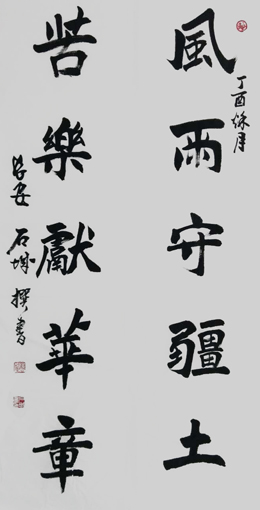 風雨守疆土
丁酉秋月
苦樂獻華章
長安石城撰書